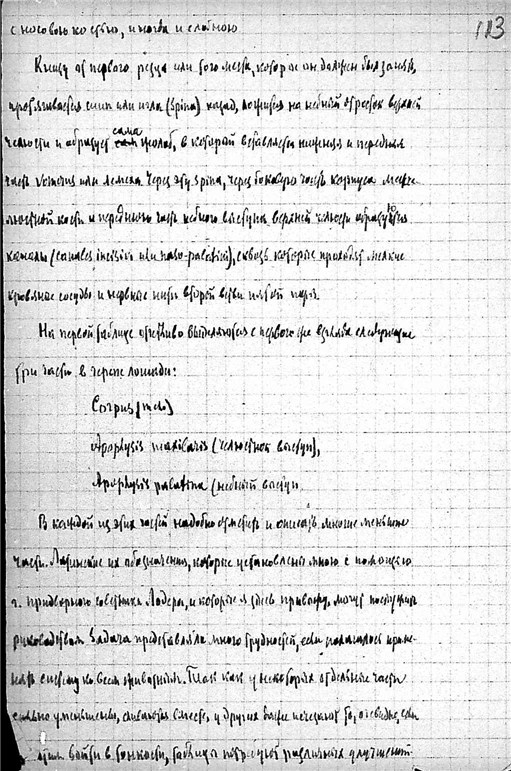 113
с носовою костью, иногда и слёзною
Книзу от первого резца или того места, которое он должен был занять,
протягивается шип или игла (spina) назад, ложится на нёбный отросток верхней
челюсти и образует сама жолоб, в который вставляется нижняя и передняя
часть vomeris или лемеха. Через эту spina, через боковую часть корпуса меж-
челюстной кости и переднюю часть нёбного выступа верхней челюсти образуются
каналы (canales incisivi или naso-palatini), сквозь которые проходят мелкие
кровяные сосуды и нервные нити второй ветви пятой пары.
На первой таблице отчётливо выделяются с первого же взгляда следующие
три части в черепе лошади:
Corpus (тело)
Apophysis maxillaris (челюстной выступ),
Apophysis palatina (нёбный выступ
В каждой из этих частей надобно отметить и описать многие меньшие
части. Латинские их обозначения, которые установлены мною с помощью
г. придворного советника Лодера, и которые я здесь привожу, могут послужить
руководством. Задача представляла много трудностей, если полагалось приме-
нять систему ко всем животным. Так как у некоторых отдельные части
сильно уменьшены, сливаются вместе, у других даже исчезают, то, очевидно, если
войти в тонкости, таблица потребует различных улучшений.